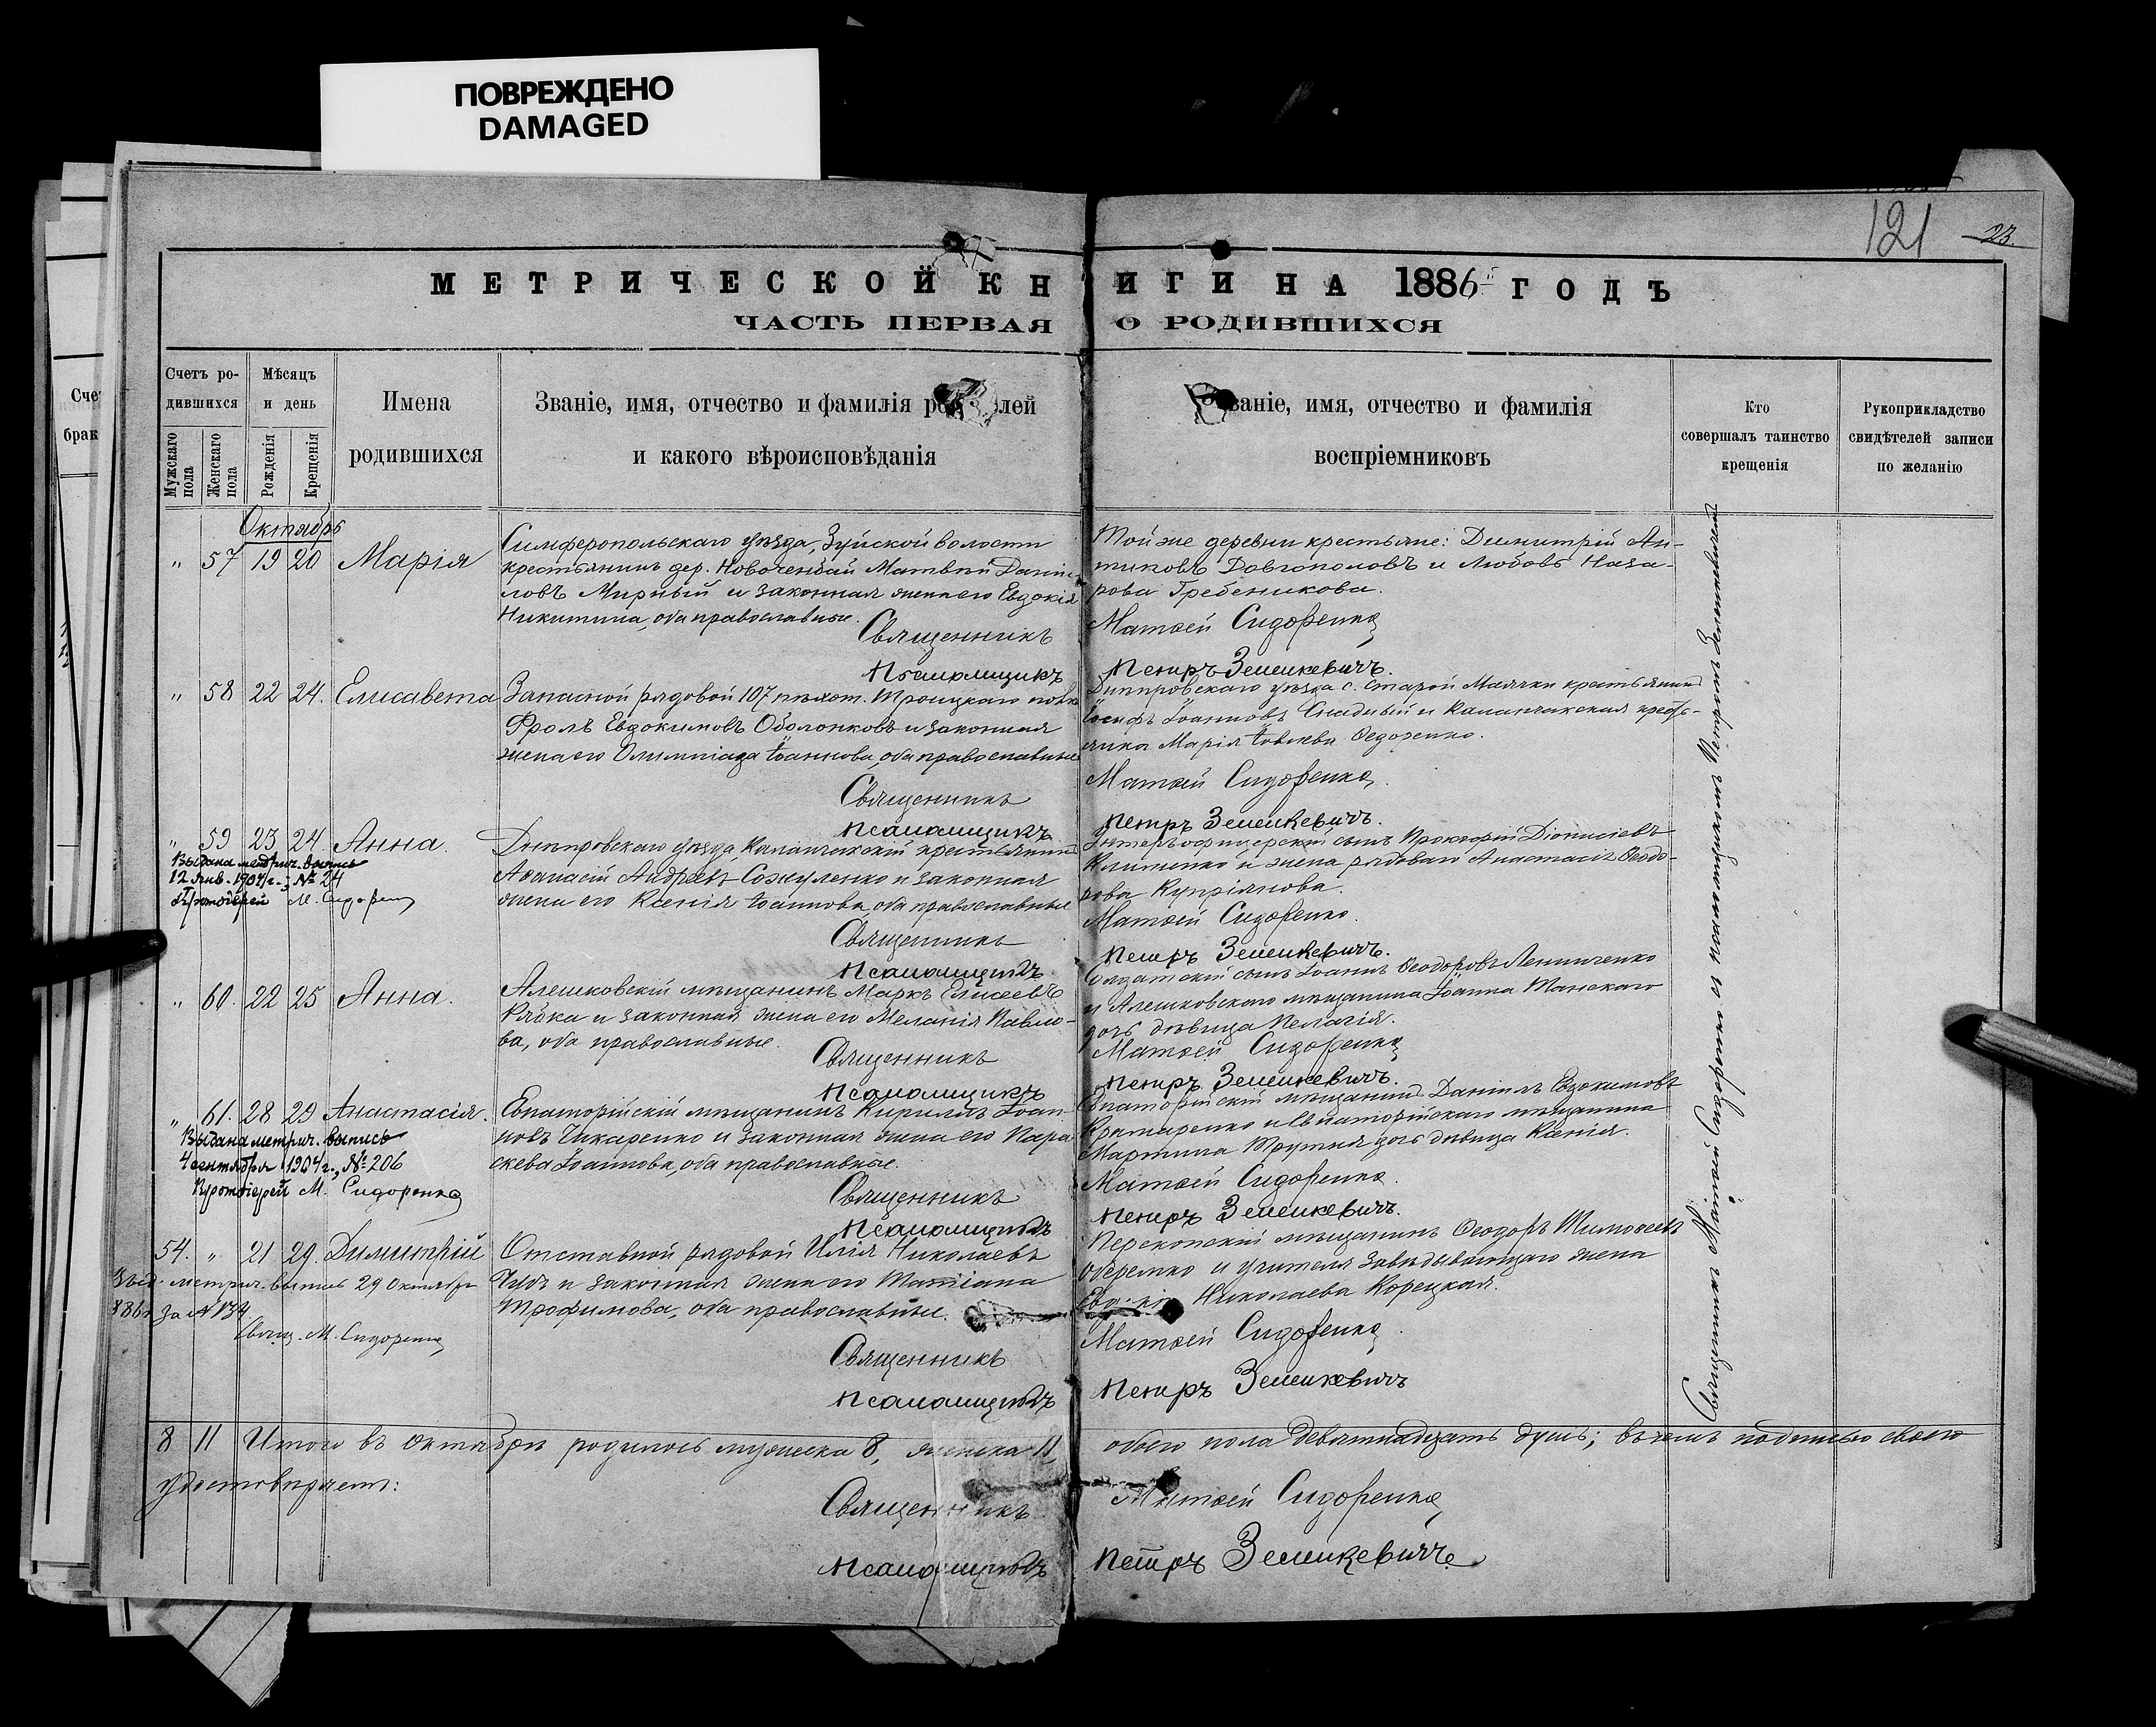 ПОВРЕЖДЕНО
DAMAGED
121 23
МЕТРИЧЕСКОЙ КНИГИ НА 1886й ГОДЪ
ЧАСТЬ ПЕРВАЯ О РОДИВШИХСЯ
Счетъ ро-
дившихся
Мужскаго пола
Женскаго пола
Мѣсяцъ
и день
Рожденія
Крещенія
Имена
родившихся
Званіе, имя, отчество и фамилія род лей
и какого вѣроисповѣданія
Званіе, имя, отчество и фамилія
воспріемниковъ
Кто
совершалъ таинство
крещенія
Рукоприкладство
свидѣтелей записи
по желанію
Сче
брак
Октябрь
" 57 19 20 Марія
Симферопольскаго уѣзда, Зуйской волости
крестьянинъ дер. Новоченбай Матвѣй Дани-
ловъ Мирный и законная жена его Евдокія
Никитина, оба православные.
Той же деревни крестьяне: Димитрій Ан-
типовъ Довгополовъ и Любовь Наза-
рова Гребеникова.
Священникъ Матѳей Сидоренко
Псаломщикъ Петръ Зеленкевичъ.
" 58 22 24. Елисавета
Запасной рядовой 107 пѣхот. Троицкаго полка
Фролъ Евдокимовъ Оболонковъ и законная
жена его Олимпіада Іоаннова, оба православные
Днѣпровскаго уѣзда с. Старой Маячки крестьянинъ
Іосифъ Іоанновъ и Каланчакская кресть-
янка Марія Іовлева Ѳедоренко.
Священникъ Матѳей Сидоренко,
Псаломщикъ Петръ Зеленкевичъ.
" 59 23 24. Анна.
Выдана метрич. выпись
12 Янв. 1904 г., № 24
Протоіерей М. Сидоренко
Днѣпровскаго уѣзда, Каланчакскій крестьянинъ
Аѳанасій Андреевъ Сожуленко и законная
жена его Ксенія Іоаннова, оба православные
Унтеръ-офицерскій сынъ Прокофій Діонисіевъ
Клименко и жена рядоваго Анастасія Ѳеодо-
рова Купріянова.
Священникъ Матѳей Сидоренко.
Псаломщикъ Петръ Зеленкевичъ.
" 60. 22 25 Анна.
Алешковскій мѣщанинъ Маркъ Елисеевъ
Рябка и законная жена его Меланія Павло-
ва, оба православные.
Солдатскій сынъ Іоаннъ Ѳеодоровъ
и Алешковскаго мѣщанина Іоанна Танскаго
дочь дѣвица Пелагія.
Священникъ Матѳей Сидоренко
Псаломщикъ Петръ Зеленкевичъ.
" 61. 28 29 Анастасія.
Выдана метрич. выпись
4 сентября 1904 г., № 206
Протоіерей М. Сидоренко
Евпаторійскій мѣщанинъ Кириллъ Іоан-
новъ Чикаренко и законная жена его Пара-
скева Іоаннова, оба православные.
Евпаторійскій мѣщанинъ Даніилъ Евдокимовъ
и Евпаторійскаго мѣщанина
Мартина дочь дѣвица Ксенія.
Священникъ Матѳей Сидоренко.
Псаломщикъ Петръ Зеленкевичъ.
54. " 21 29. Димитрій
Выд. метрич. выпись 29 Октября
886 г. за № 134.
Свящ. М. Сидоренко
Отставной рядовой Илія Николаевъ
Чудъ и законная жена его Татіана
Трофимова, оба православные.
Перекопскій мѣщанинъ Ѳеодоръ Тимоѳеевъ
и учителя завѣдывающаго жена
Николаева Корецкая.
Священникъ Матѳей Сидоренко
Псаломщикъ Петръ Зеленкевичъ
Священникъ Матѳей Сидоренко съ псаломщикомъ Петромъ Зеленкевичемъ
8 11 Итого въ октябрѣ родилось мужеска 8, женска 11, обоего пола девятнадцать душъ; въ чемъ подписью своею
удостовѣряетъ:
Священникъ Матѳей Сидоренко,
Псаломщикъ Петръ Зеленкевичъ